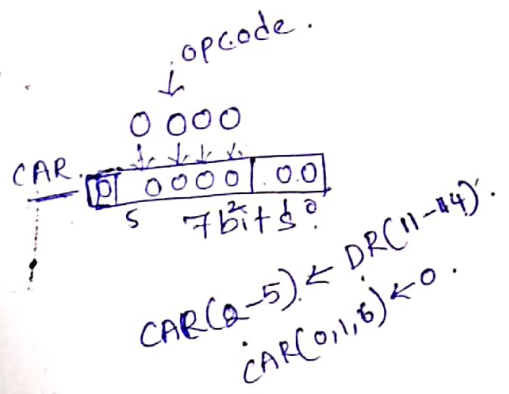 opcode.
0 000
CAR. 0 0000 .00
5 2 0
7bits.
CAR(2-5) ← DR(11-14).
CAR(0,1,6) ← 0.